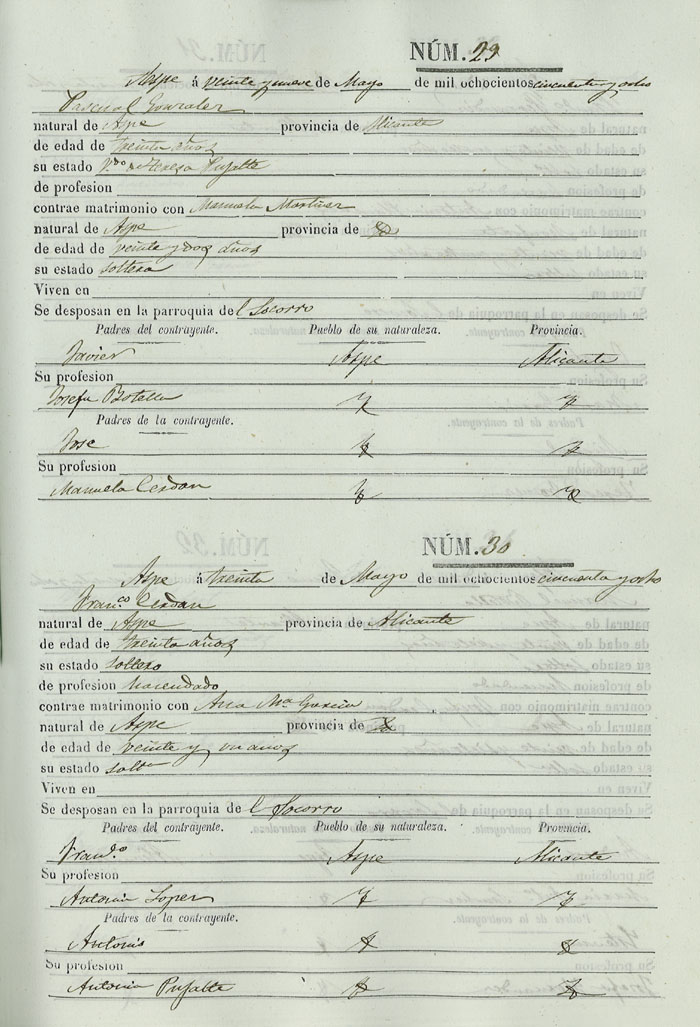 NÚM. 29
Aspe á veinte y nueve de Mayo de mil ochocientos cincuenta y ocho
Pascual Gonzalez
natural de Aspe provincia de Alicante
de edad de treinta años
su estado V.do de Teresa Pujalte
de profesion
contrae matrimonio con Manuela Martinez
natural de Aspe provincia de
de edad de veinte y dos años
su estado soltera
Viven en
Se desposan en la parroquia del Socorro
Padres del contrayente. Pueblo de su naturaleza. Provincia.
Javier Aspe Alicante
Su profesion
Josefa Botella
Padres de la contrayente.
Jose
Su profesion
Manuela Cerdan
NÚM. 30
Aspe á treinta de Mayo de mil ochocientos cincuenta y ocho
Fran.co Cerdan
natural de Aspe provincia de Alicante
de edad de treinta años
su estado soltero
de profesion hacendado
contrae matrimonio con Ana Ma. Garcia
natural de Aspe provincia de
de edad de veinte y un años
su estado solta
Viven en
Se desposan en la parroquia de l Socorro
Padres del contrayente. Pueblo de su naturaleza. Provincia.
Fran.co Aspe Alicante
Su profesion
Antonia Lopez
Padres de la contrayente.
Antonio
Su profesion
Antonia Pujalte